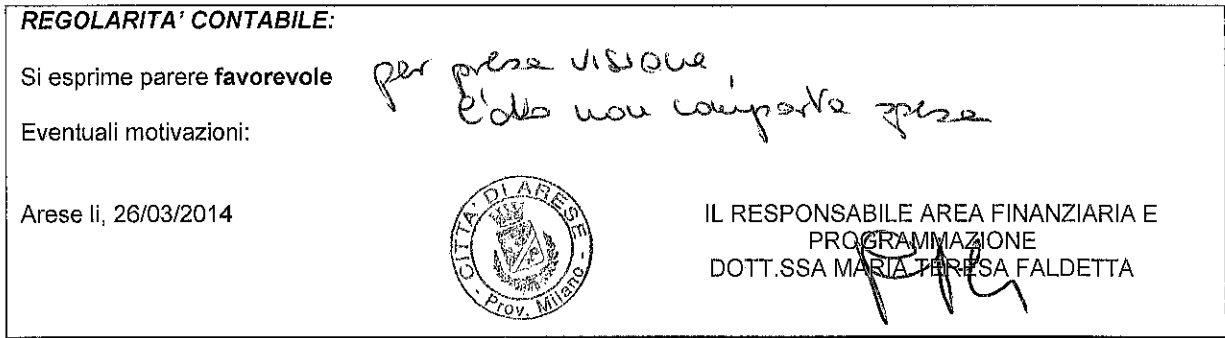 REGOLARITA' CONTABILE:
Si esprime parere favorevole per presa visione
l'atto non comporta spesa
Eventuali motivazioni:
Arese li, 26/03/2014
CITTA' DI ARESE
- Prov. Milano -
IL RESPONSABILE AREA FINANZIARIA E
PROGRAMMAZIONE
DOTT.SSA MARIA TERESA FALDETTA